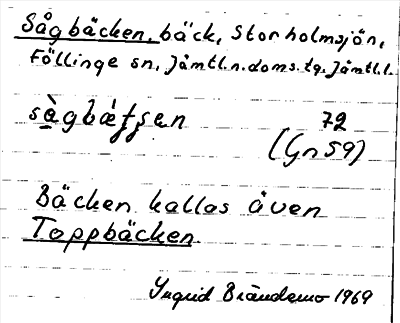 Sågbäcken, bäck, Storholmsjön,
Föllinge sn, Jämtl.n.doms.tg. Jämtl.l.
72
(Gn 59)
Bäcken kallas även
Toppbäcken
Ingrid Brändemo 1969